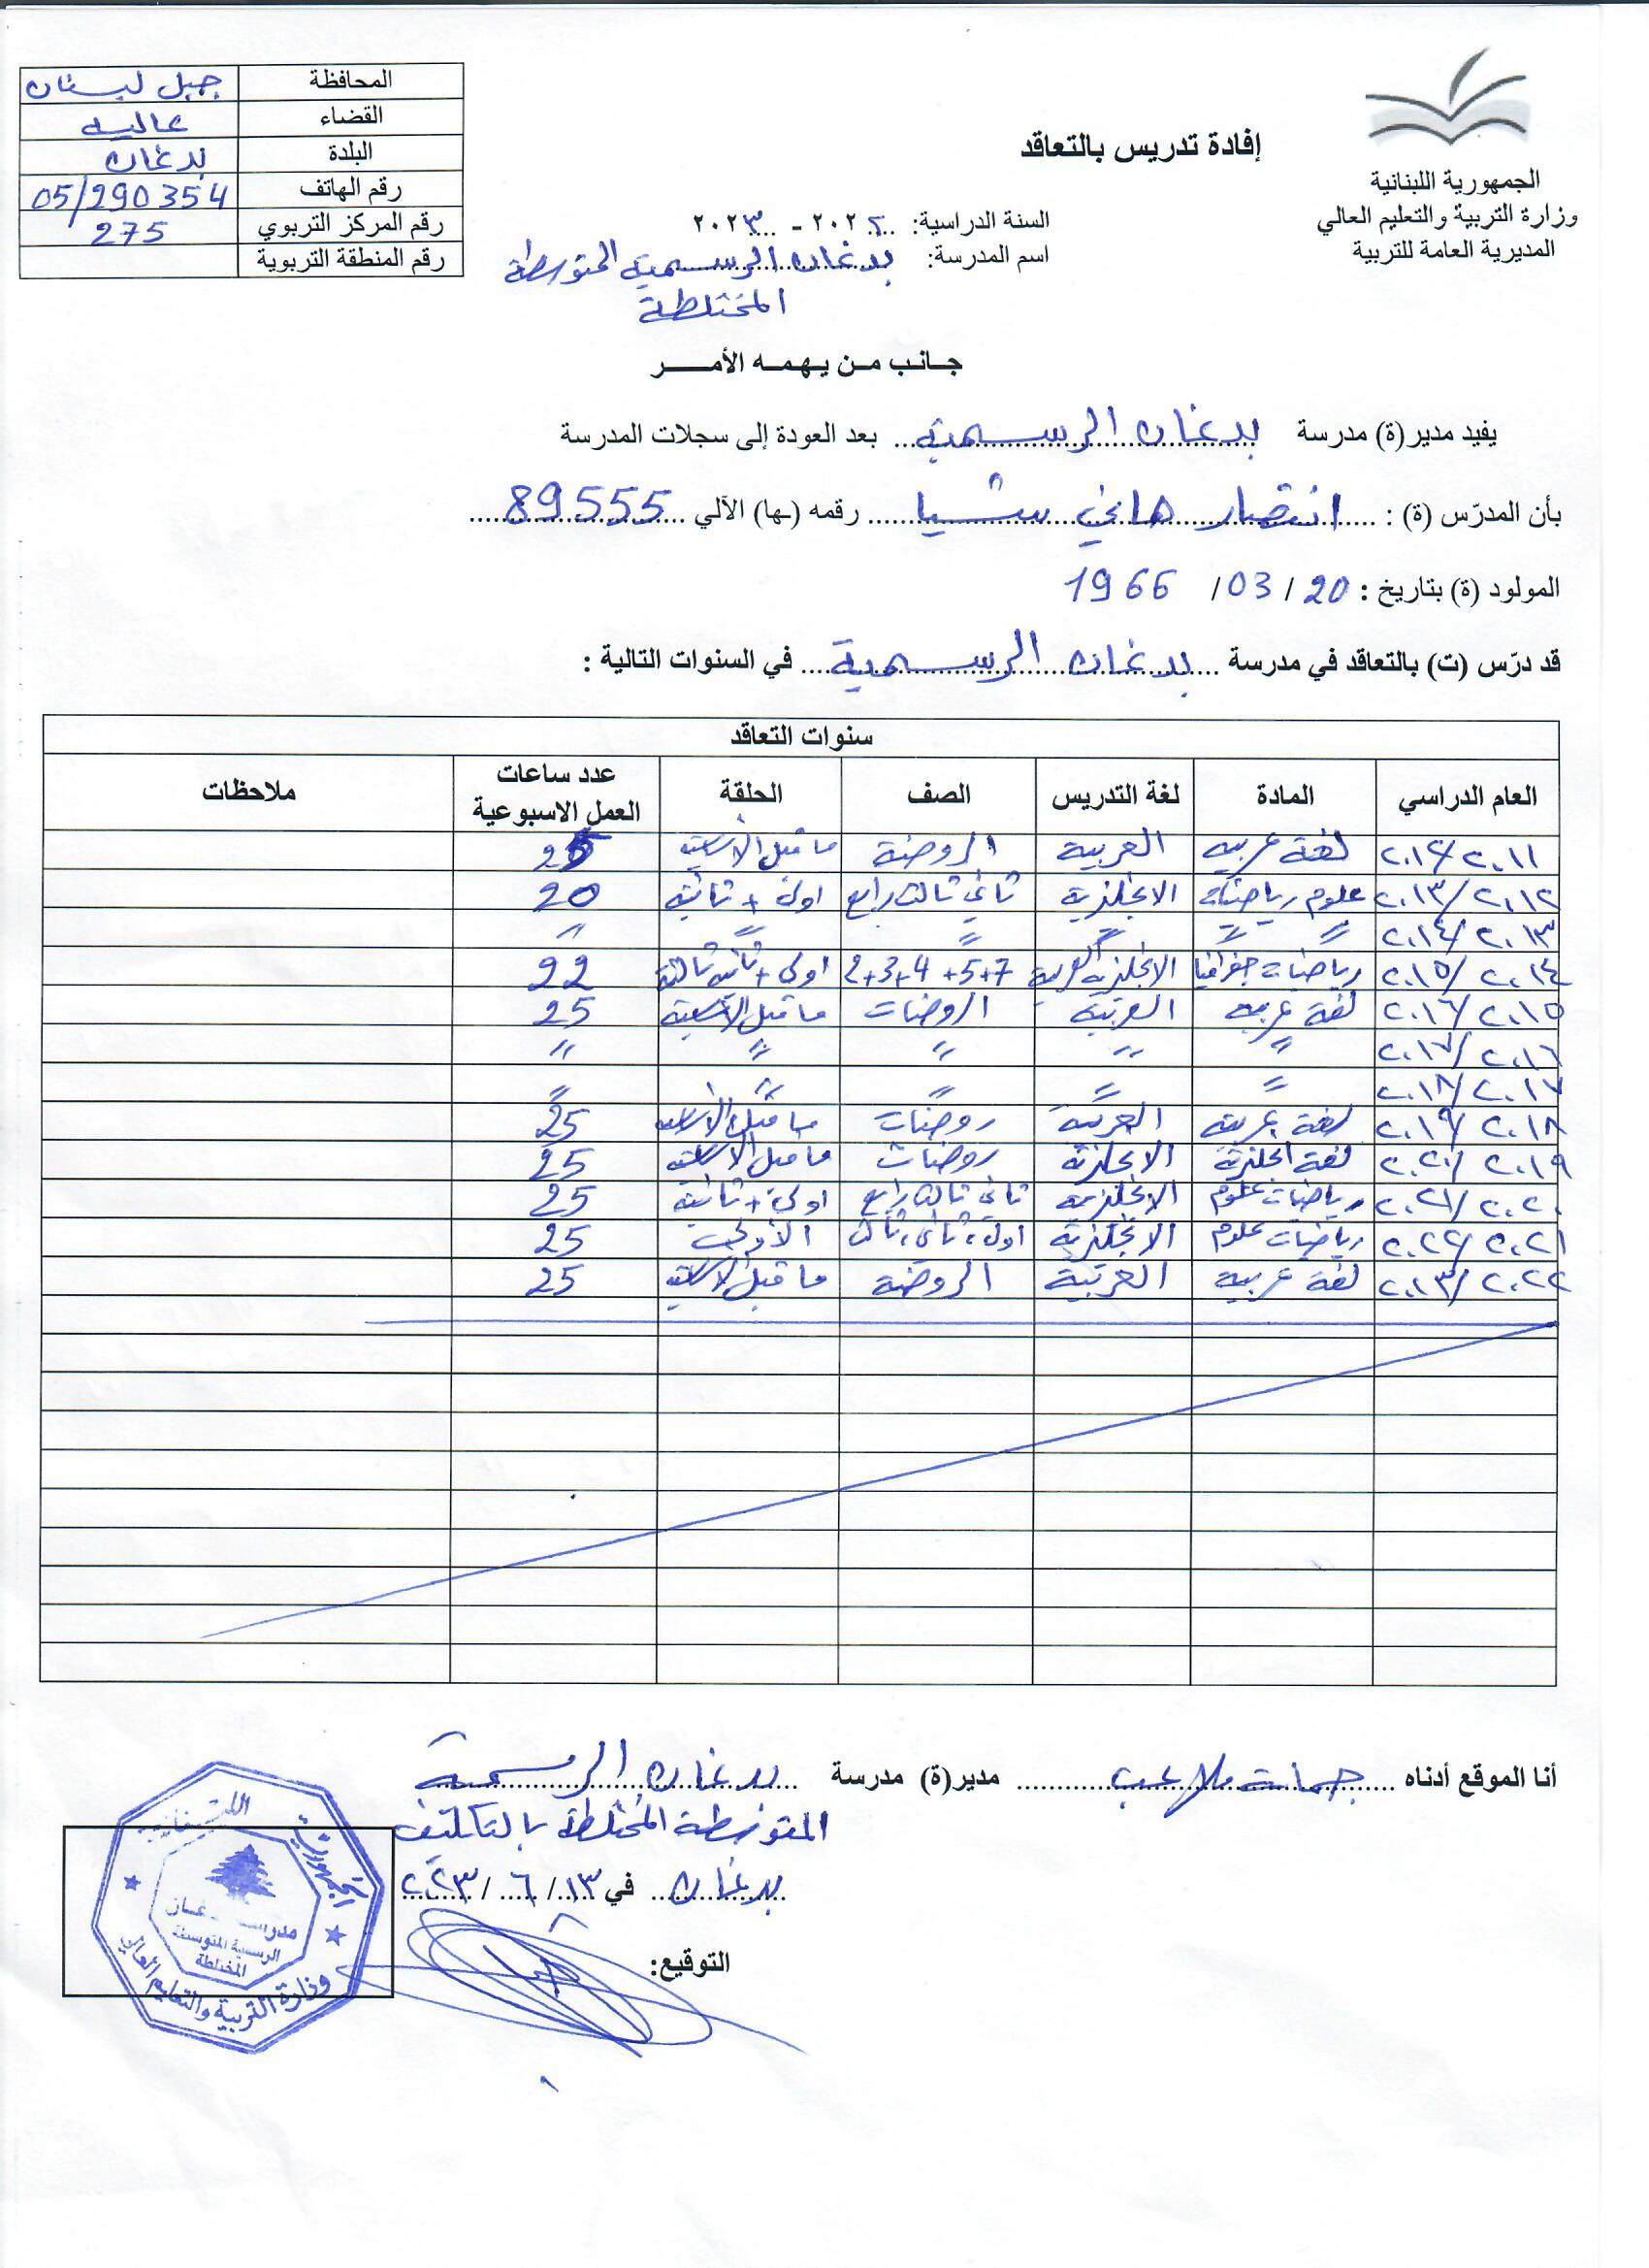 الجمهورية اللبنانية
وزارة التربية والتعليم العالي
المديرية العامة للتربية
إفادة تدريس بالتعاقد
السنة الدراسية: ٢٠٢٢ - ٢٠٢٣
اسم المدرسة: بدغان الرسمية المتوسطة
المختلطة
المحافظة جبل لبنان
القضاء عاليه
البلدة بدغان
رقم الهاتف 05/290354
رقم المركز التربوي 275
رقم المنطقة التربوية
جانب من يهمه الأمر
يفيد مدير(ة) مدرسة بدغان الرسمية بعد العودة إلى سجلات المدرسة
بأن المدرّس (ة) : انتصار هاني شيا رقمه (ـها) الآلي 89555
المولود (ة) بتاريخ : 20 / 03 / 1966
قد درّس (ت) بالتعاقد في مدرسة بدغان الرسمية في السنوات التالية :
سنوات التعاقد
العام الدراسي المادة لغة التدريس الصف الحلقة عدد ساعات العمل الاسبوعية ملاحظات
٢٠١١/٢٠١٢ لغة عربية العربية الروضة ما قبل الأساسية 25
٢٠١٢/٢٠١٣ علوم رياضيات الانجلزية ثاني ثالث رابع اولى + ثانية 20
٢٠١٣/٢٠١٤ " " " " " "
٢٠١٤/٢٠١٥ رياضيات جغرافيا الانجلزية العربية 2+3+4+5+7 اولى + ثانية ثالثة 22
٢٠١٥/٢٠١٦ لغة عربية العربية الروضات ما قبل الأساسية 25
٢٠١٦/٢٠١٧ " " " " "
٢٠١٧/٢٠١٨ " " " " "
٢٠١٨/٢٠١٩ لغة عربية العربية روضات ما قبل الأساسية 25
٢٠١٩/٢٠٢٠ لغة انجلزية الانجلزية روضات ما قبل الاساسية 25
٢٠٢٠/٢٠٢١ رياضيات علوم الانجلزية ثاني ثالث رابع اولى + ثانية 25
٢٠٢١/٢٠٢٢ رياضيات علوم الانجلزية اول، ثاني، ثالث الأولى 25
٢٠٢٢/٢٠١٣ لغة عربية العربية الروضة ما قبل الاساسية 25
أنا الموقع أدناه جمانة ملاعب مدير(ة) مدرسة بدغان الرسمية
المتوسطة المختلطة بالتكليف
بدغان في ١٣ / ٦ / ٢٠٢٣
التوقيع:
الجمهورية اللبنانية
مدرسة بدغان
الرسمية المتوسطة
المختلطة
وزارة التربية والتعليم العالي